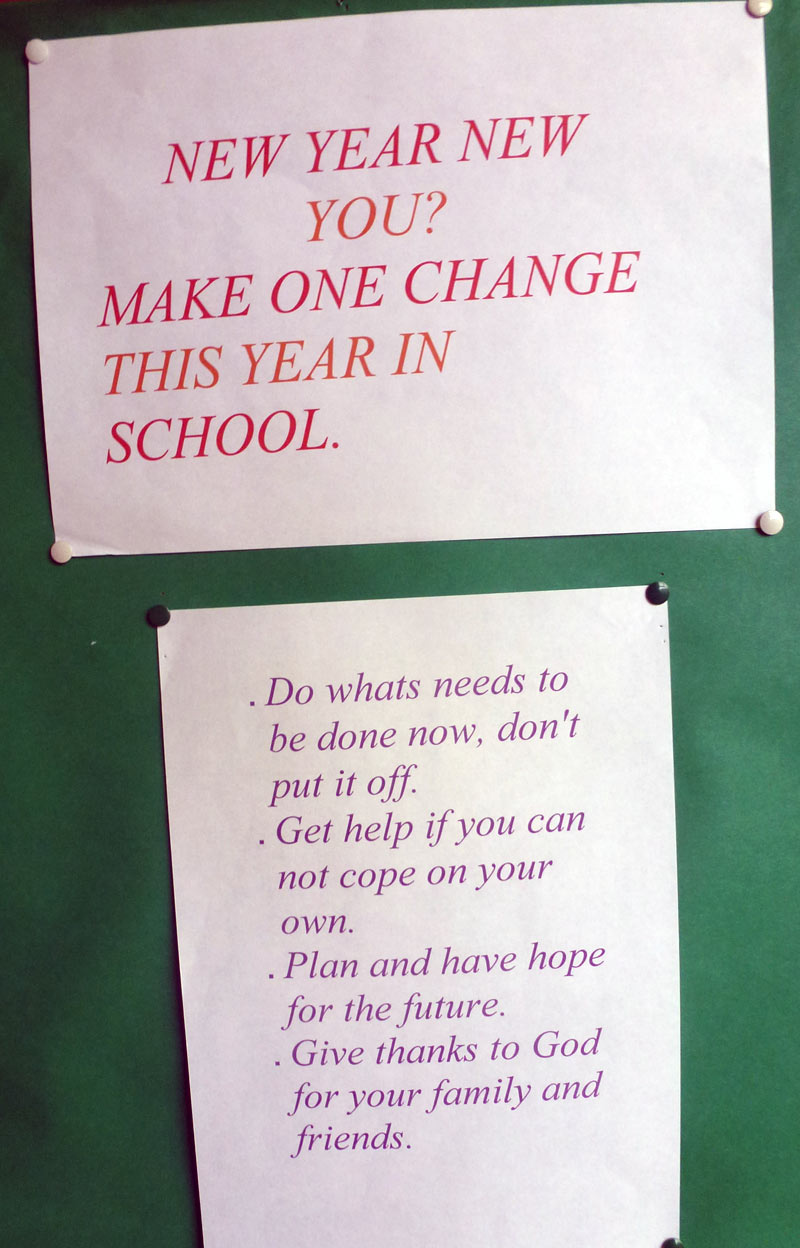 NEW YEAR NEW
YOU?
MAKE ONE CHANGE
THIS YEAR IN
SCHOOL.
. Do whats needs to
be done now, don't
put it off.
. Get help if you can
not cope on your
own.
. Plan and have hope
for the future.
. Give thanks to God
for your family and
friends.